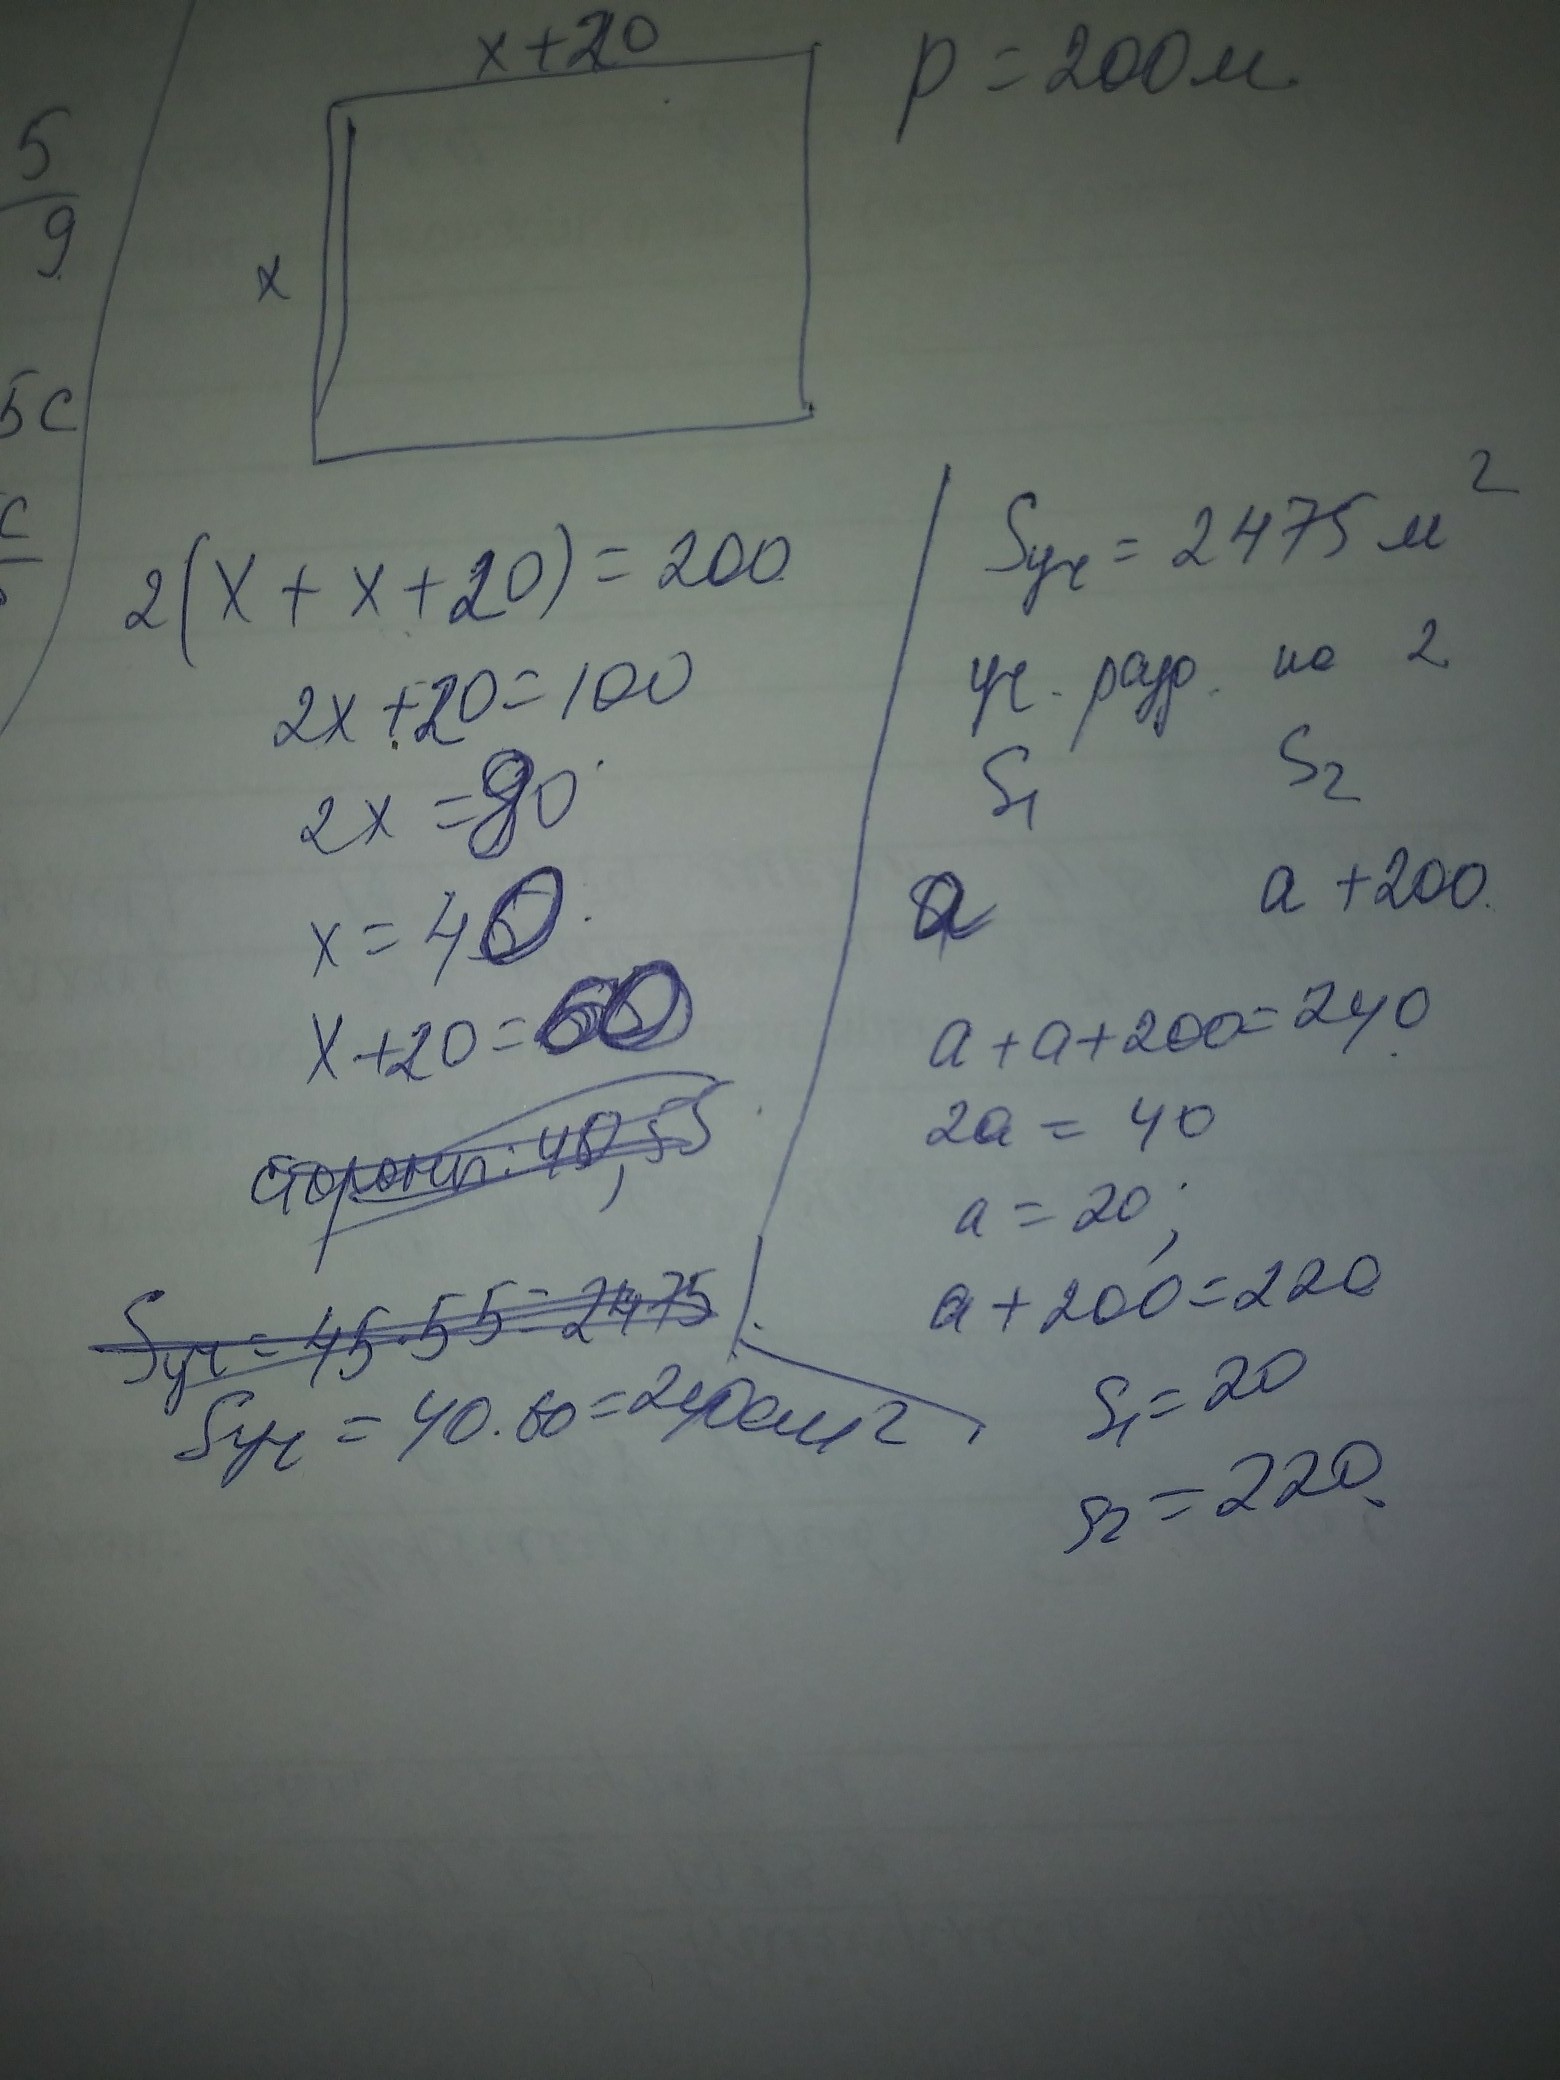 5
9
5с
с
x+20
p = 200м
x
2(x + x + 20) = 200
2x + 20 = 100
2x = 80
x = 40
x + 20 = 60
стороны: 
Sуч = 45·55 = 2475
Sуч = 40·60 = 2400м2
Sуч = 2475 м²
уч. разд. на 2
S1 S2
a a + 200
a + a + 200 = 240
2a = 40
a = 20;
a + 200 = 220
S1 = 20
S2 = 220